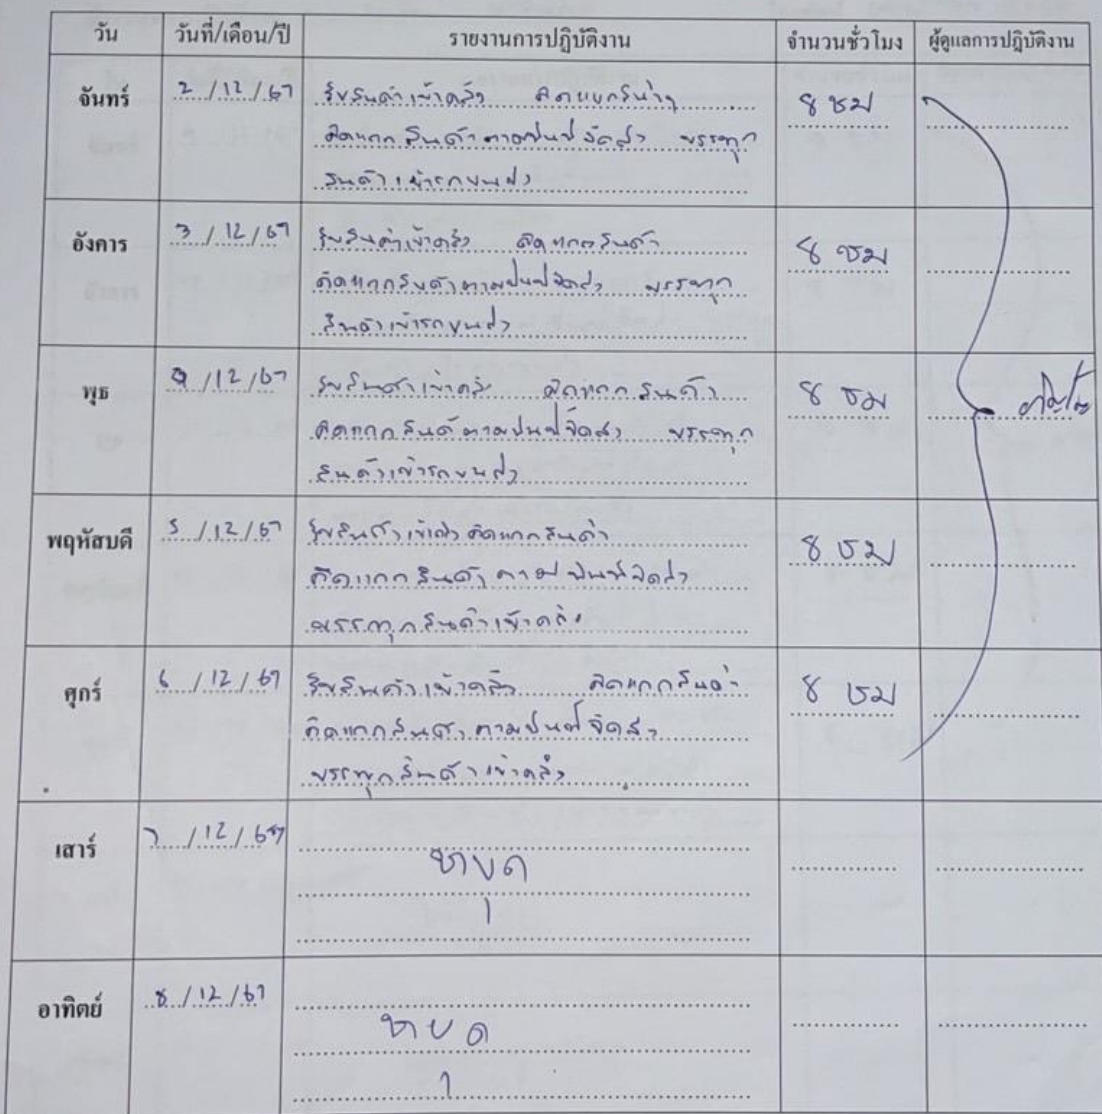 วัน วันที่/เดือน/ปี รายงานการปฏิบัติงาน จำนวนชั่วโมง ผู้ดูแลการปฏิบัติงาน
จันทร์ 2/12/67 รับสินค้าเข้าคลัง คัดแยกสินค้า 8 ชม
คัดแยกสินค้าตามพื้นที่จัดส่ง บรรทุก
สินค้าเข้ารถขนส่ง
อังคาร 3/12/67 รับสินค้าเข้าคลัง คัดแยกสินค้า 8 ชม
คัดแยกสินค้าตามพื้นที่จัดส่ง บรรทุก
สินค้าเข้ารถขนส่ง
พุธ 4/12/67 รับสินค้าเข้าคลัง คัดแยกสินค้า 8 ชม
คัดแยกสินค้าตามพื้นที่จัดส่ง บรรทุก
สินค้าเข้ารถขนส่ง
พฤหัสบดี 5/12/67 รับสินค้าเข้าคลัง คัดแยกสินค้า 8 ชม
คัดแยกสินค้าตามพื้นที่จัดส่ง
บรรทุกสินค้าเข้าคลัง
ศุกร์ 6/12/67 รับสินค้าเข้าคลัง คัดแยกสินค้า 8 ชม
คัดแยกสินค้าตามพื้นที่จัดส่ง
บรรทุกสินค้าเข้าคลัง
เสาร์ 7/12/67 หยุด
อาทิตย์ 8/12/67 หยุด